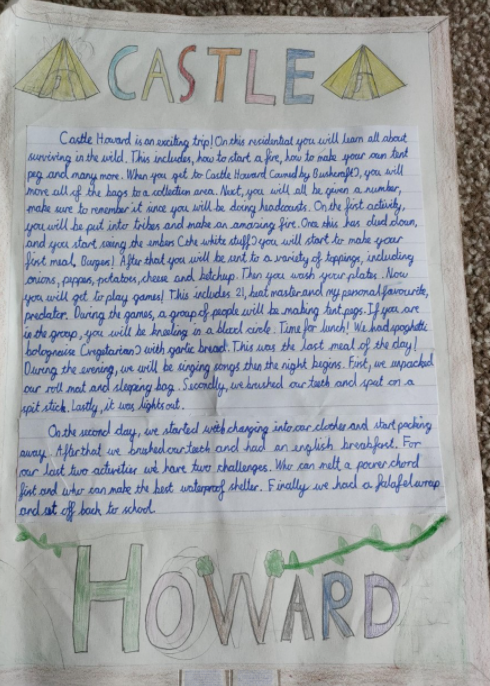 CASTLE
Castle Howard is an exciting trip! On this residential you will learn all about
surviving in the wild. This includes, how to start a fire, how to make your own tent
peg and many more. When you get to Castle Howard (owned by Bushcraft), you will
move all of the bags to a collection area. Next, you will all be given a number,
make sure to remember it since you will be doing headcounts. On the first activity,
you will be put into tribes and make an amazing fire. Once this has died down,
and you start using the embers (the white stuff) you will start to make your
first meal, Burgers! After that you will be sent to a variety of toppings, including
onions, pepper, potatoes, cheese and ketchup. Then you wash your plates. Now
you will get to play games! This includes 21, beat master and my personal favourite,
predator. During the games, a group of people will be making tent pegs. If you are
in the group, you will be kneeling in a blood circle. Time for lunch! We had spaghetti
bolognaise (vegetarian) with garlic bread. This was the last meal of the day!
During the evening, we will be singing songs then the night begins. First, we unpacked
our roll mat and sleeping bag. Secondly, we brushed our teeth and spat on a
spit stick. Lastly, it was lights out.
On the second day, we started with changing into our clothes and start packing
away. After that we brushed our teeth and had an english breakfast. For
our last two activities we have two challenges. Who can melt a power chord
first and who can make the best waterproof shelter. Finally we had a falafel wrap
and set off back to school.
HOWARD